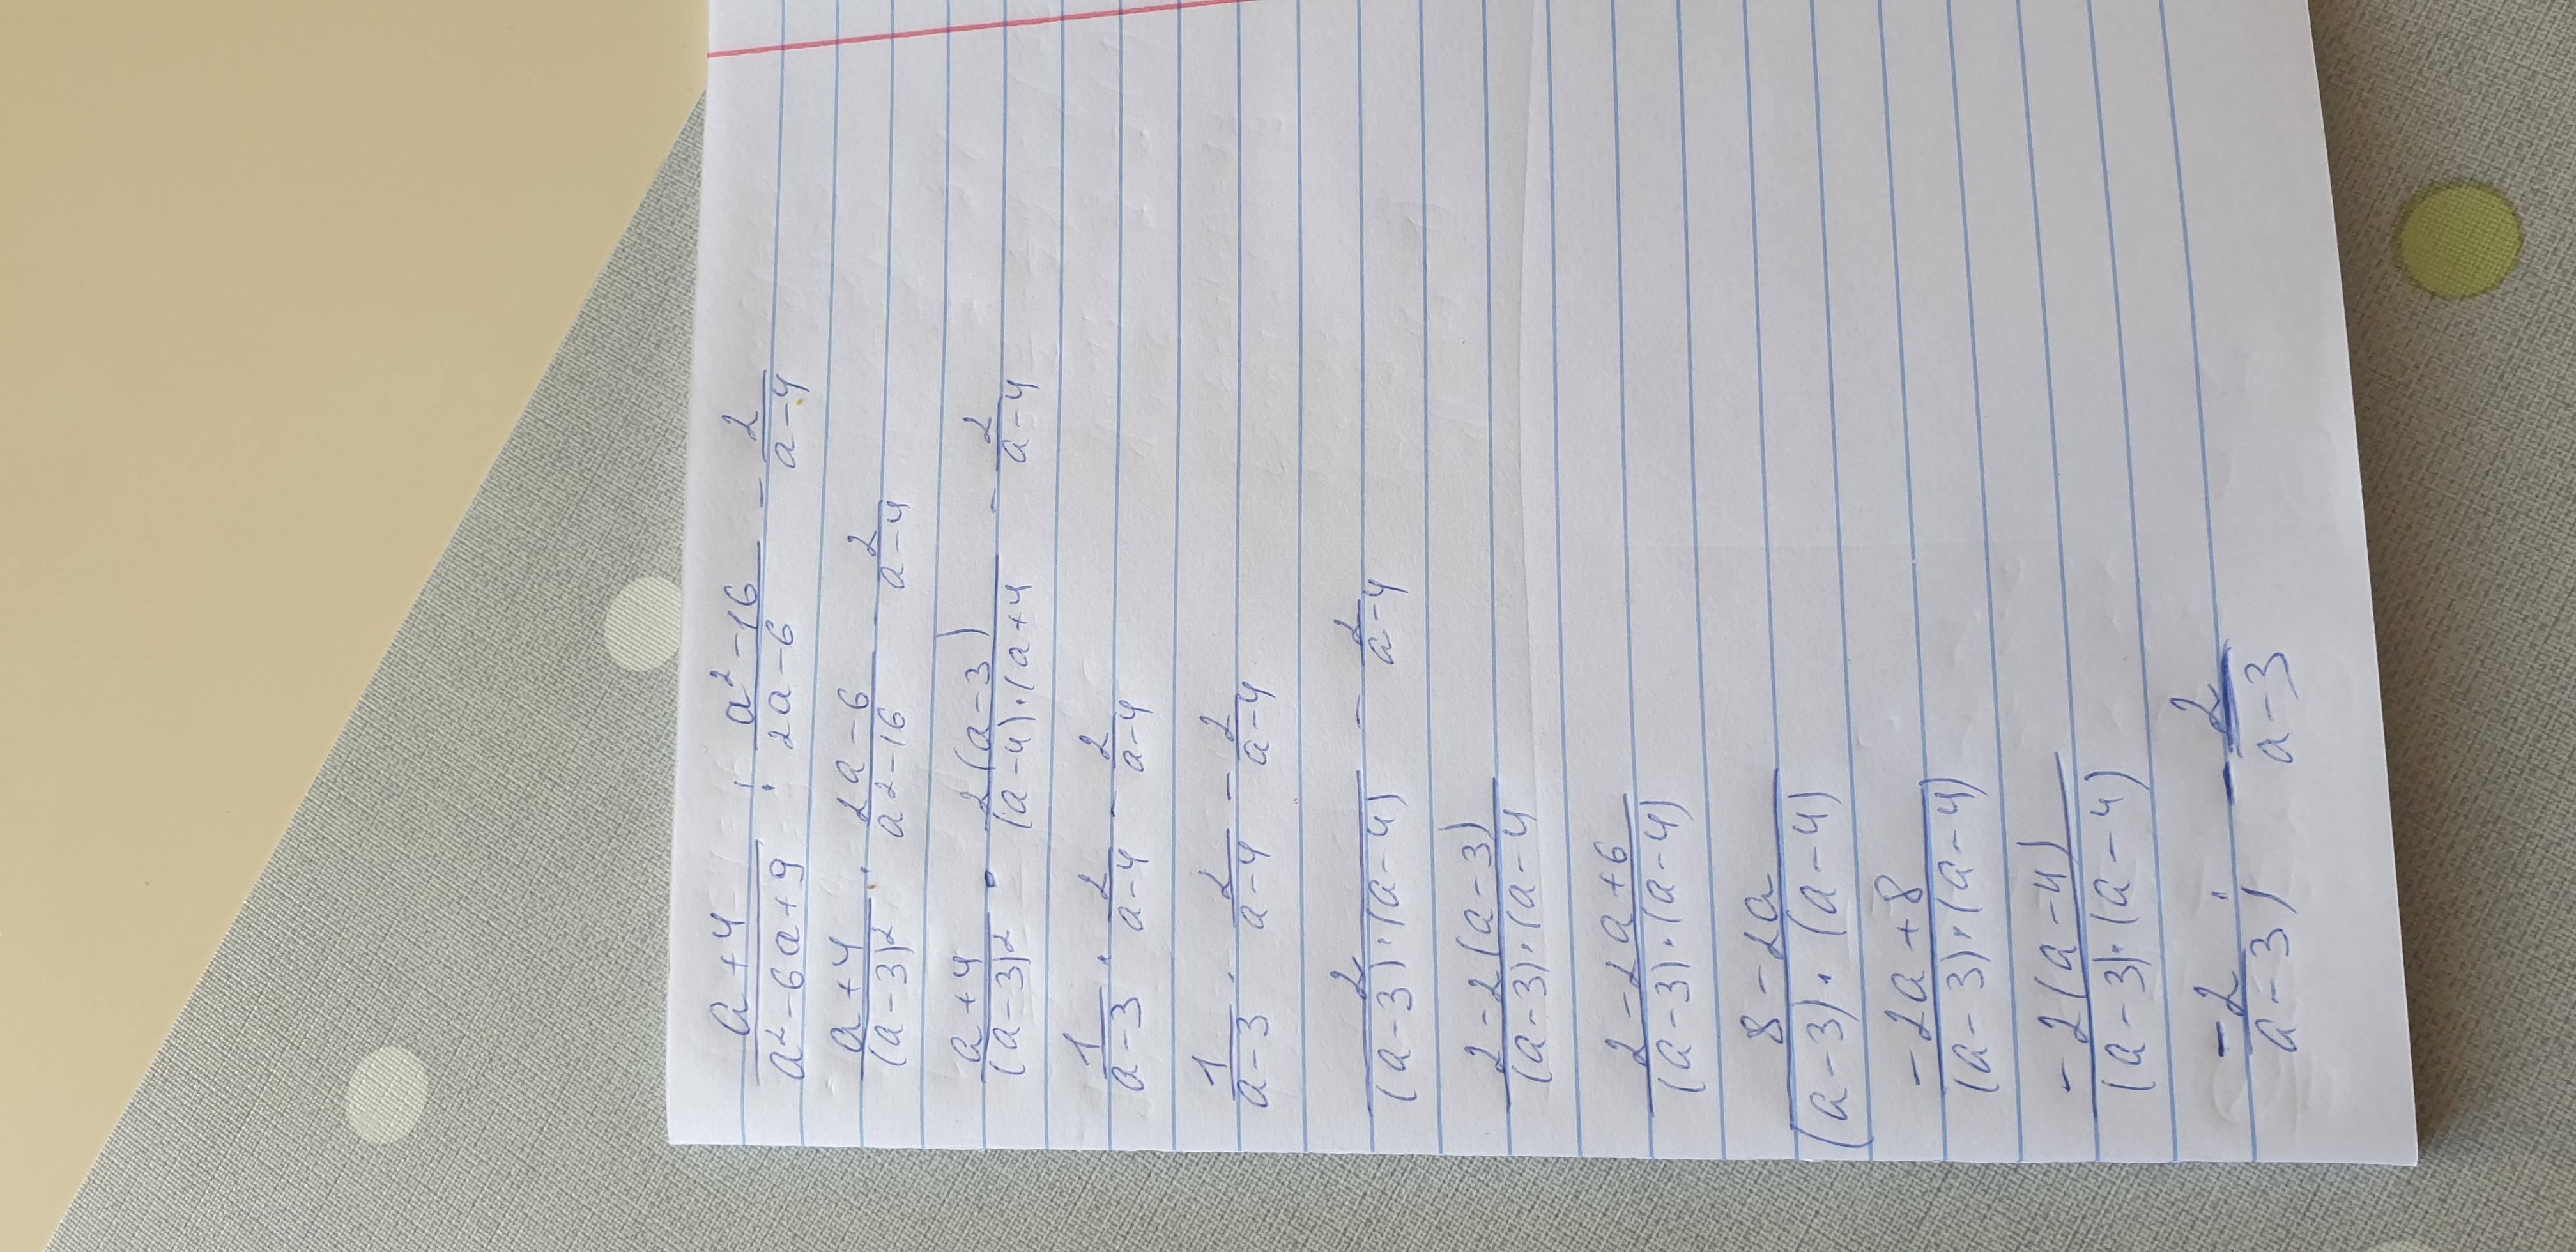 a+4/a²-6a+9 : a²-16/2a-6 - 2/a-4
a+4/(a-3)2 · 2a-6/a2-16 - 2/a-4
a+4/(a-3)2 · 2(a-3)/(a-4)·(a+4 - 2/a-4
1/a-3 · 2/a-4 - 2/a-4
1/a-3 · 2/a-4 - 2/a-4
2/(a-3)·(a-4) - 2/a-4
2-2(a-3)/(a-3)·(a-4
2-2a+6/(a-3)·(a-4)
8-2a/(a-3)·(a-4)
-2a+8/(a-3)·(a-4)
-2(a-4)/(a-3)·(a-4)
-2/a-3; -2/a-3